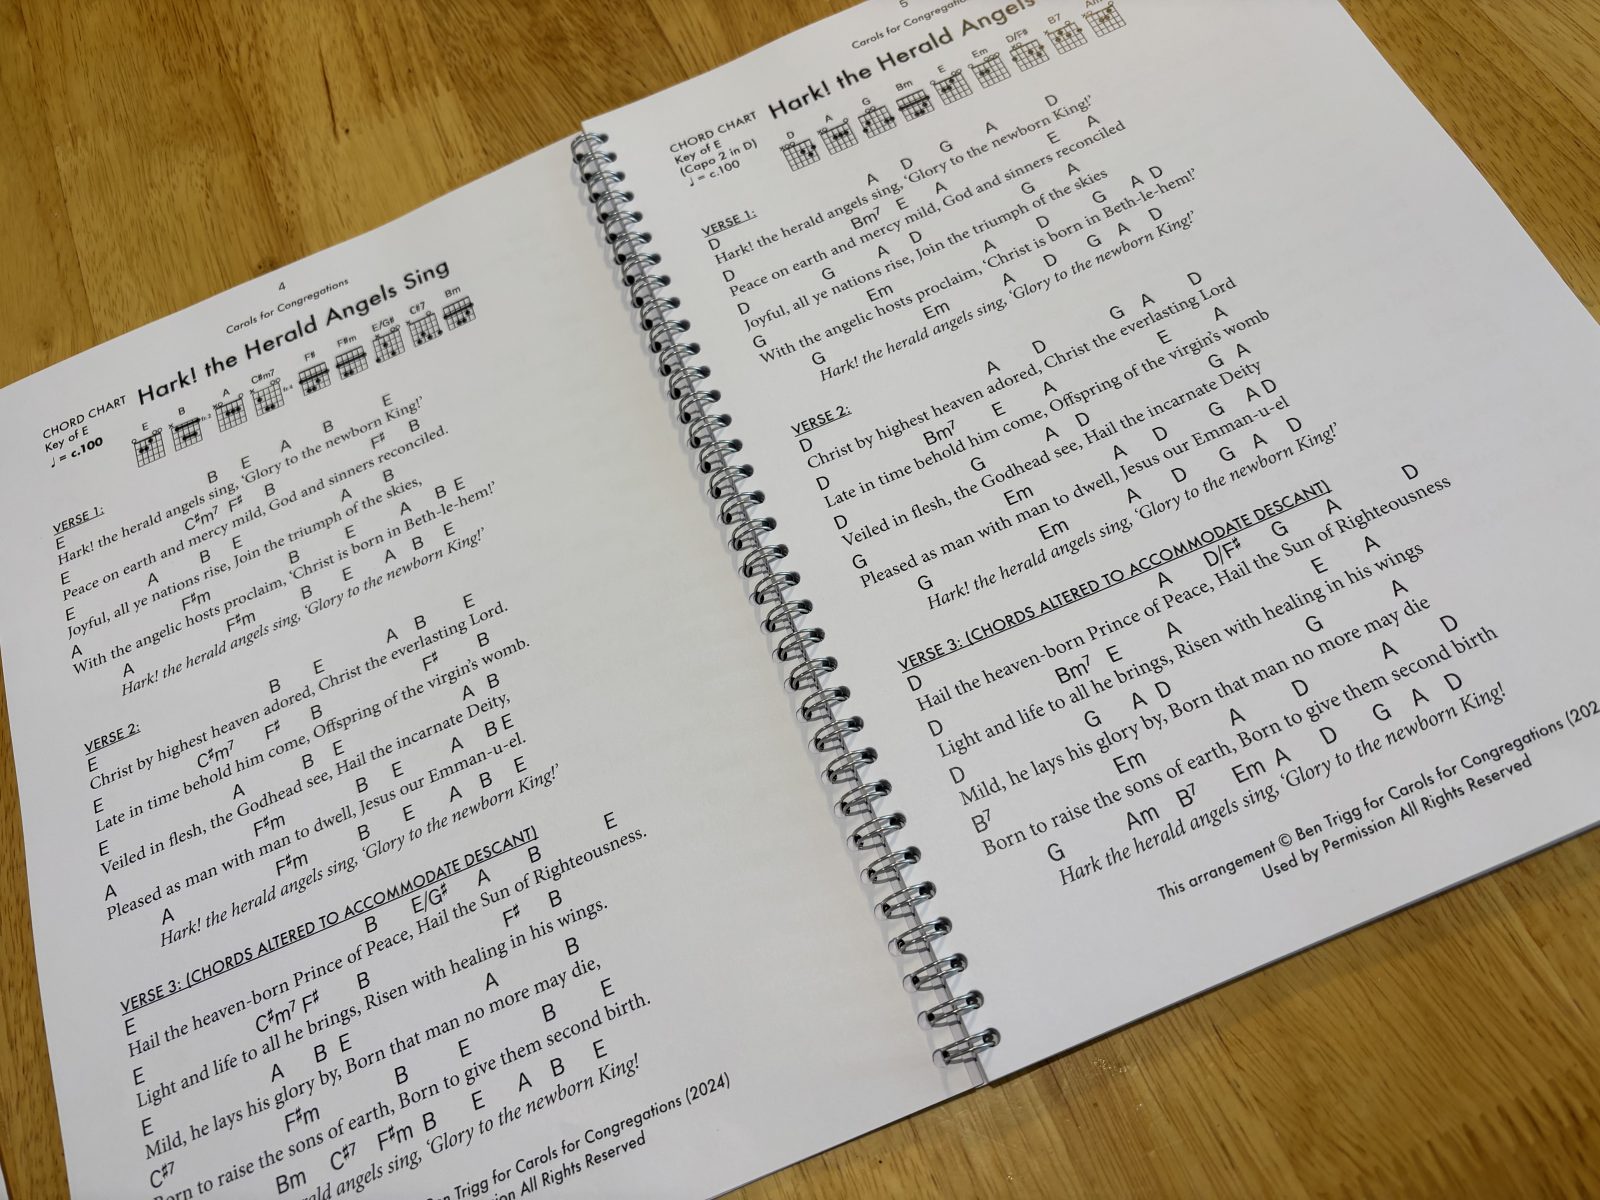 4
Carols for Congregations
Hark! the Herald Angels Sing
CHORD CHART
Key of E
♩ = c.100
E B A C#m7 F# F#m E/G# C#7 Bm
fr.2 fr.4
VERSE 1:
E B E A B E
Hark! the herald angels sing, ‘Glory to the newborn King!’
E C#m7 F# B F# B
Peace on earth and mercy mild, God and sinners reconciled.
E A B E A B
Joyful, all ye nations rise, Join the triumph of the skies,
A F#m B E A B E
With the angelic hosts proclaim, ‘Christ is born in Beth-le-hem!’
A F#m B E A B E
Hark! the herald angels sing, ‘Glory to the newborn King!’
VERSE 2:
E B E A B E
Christ by highest heaven adored, Christ the everlasting Lord.
E C#m7 F# B F# B
Late in time behold him come, Offspring of the virgin’s womb.
E A B E A B
Veiled in flesh, the Godhead see, Hail the incarnate Deity,
A F#m B E A B E
Pleased as man with man to dwell, Jesus our Emman-u-el.
A F#m B E A B E
Hark! the herald angels sing, ‘Glory to the newborn King!’
VERSE 3: (CHORDS ALTERED TO ACCOMMODATE DESCANT)
E B E/G# A B E
Hail the heaven-born Prince of Peace, Hail the Sun of Righteousness.
E C#m7 F# B F# B
Light and life to all he brings, Risen with healing in his wings.
E A B E A B
Mild, he lays his glory by, Born that man no more may die,
C#7 F#m B E B E
Born to raise the sons of earth, Born to give them second birth.
Bm C#7 F#m B E A B E
angels sing, ‘Glory to the newborn King!
Ben Trigg for Carols for Congregations (2024)
All Rights Reserved
5
Carols for Congregations
Hark! the Herald Angels
CHORD CHART
Key of E
(Capo 2 in D)
♩ = c.100
D A G Bm E Em D/F# B7 Am
VERSE 1:
D A D G A D
Hark! the herald angels sing, ‘Glory to the newborn King!’
D Bm7 E A E A
Peace on earth and mercy mild, God and sinners reconciled
D G A D G A
Joyful, all ye nations rise, Join the triumph of the skies
G Em A D G A D
With the angelic hosts proclaim, ‘Christ is born in Beth-le-hem!’
G Em A D G A D
Hark! the herald angels sing, ‘Glory to the newborn King!’
VERSE 2:
D A D G A D
Christ by highest heaven adored, Christ the everlasting Lord
D Bm7 E A E A
Late in time behold him come, Offspring of the virgin’s womb
D G A D G A
Veiled in flesh, the Godhead see, Hail the incarnate Deity
G Em A D G A D
Pleased as man with man to dwell, Jesus our Emman-u-el
G Em A D G A D
Hark! the herald angels sing, ‘Glory to the newborn King!’
VERSE 3: (CHORDS ALTERED TO ACCOMMODATE DESCANT)
D A D/F# G A D
Hail the heaven-born Prince of Peace, Hail the Sun of Righteousness
D Bm7 E A E A
Light and life to all he brings, Risen with healing in his wings
D G A D G A
Mild, he lays his glory by, Born that man no more may die
B7 Em A D A D
Born to raise the sons of earth, Born to give them second birth
G Am B7 Em A D G A D
Hark the herald angels sing, ‘Glory to the newborn King!
This arrangement © Ben Trigg for Carols for Congregations (202
Used by Permission All Rights Reserved